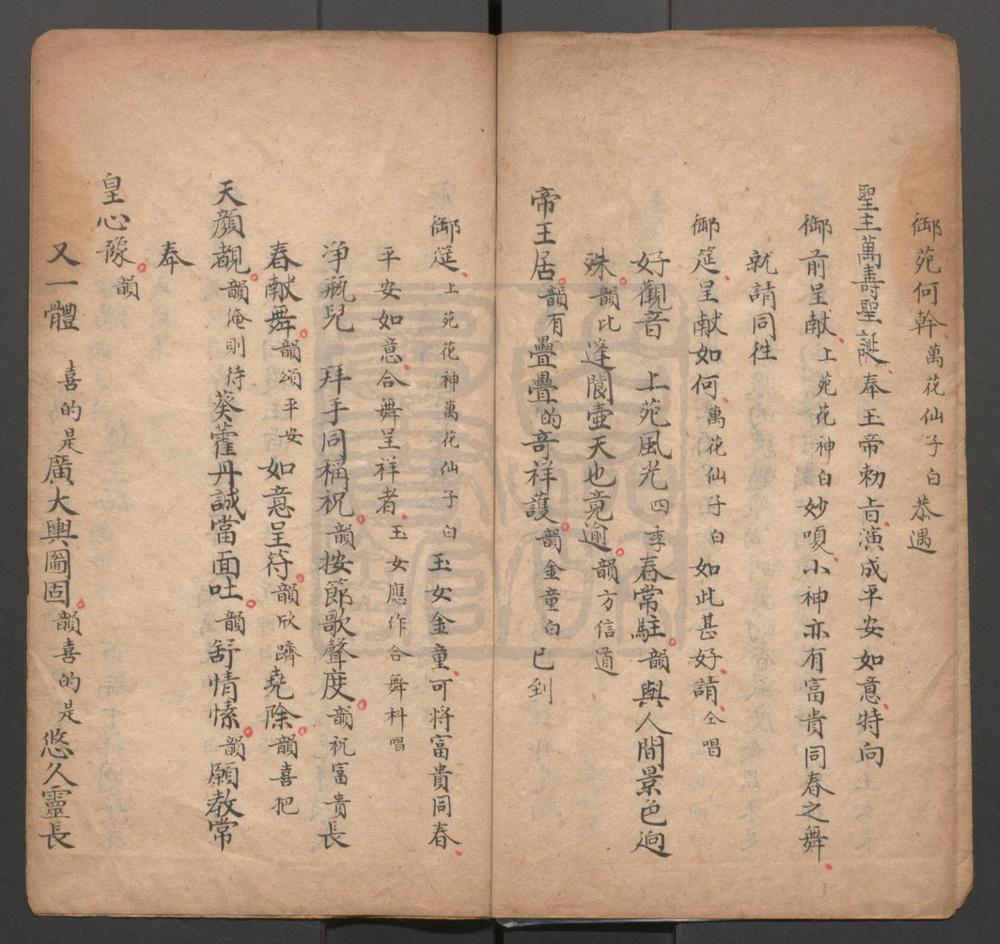 御苑何幹萬花仙子白恭遇
聖主萬壽聖誕奉玉帝勅旨演成平安如意特向
御前呈献上苑花神白妙嗄小神亦有富貴同春之舞
就請同徃
御筵呈献如何萬花仙子白如此甚好請仝唱
好觀音 上苑風光四季春常駐韻與人間景色逈
殊韻比逢閬壺天也竟逾韻方信道
帝王居韻有疊疊的竒祥護韻金童白已到
御筵上苑花神萬花仙子白玉女金童可將富貴同春
平安如意合舞呈祥者玉女應作合舞科唱
淨瓶兒 拜手同稱祝韻按節歌聲度韻祝富貴長
春献舞韻頌平安如意呈符韻欣躋堯除韻喜把
天顔覩韻俺則待葵藿丹誠當面吐韻舒情愫韻願教常
奉
皇心豫韻
又一體 喜的是廣大輿圖固韻喜的是悠久靈長